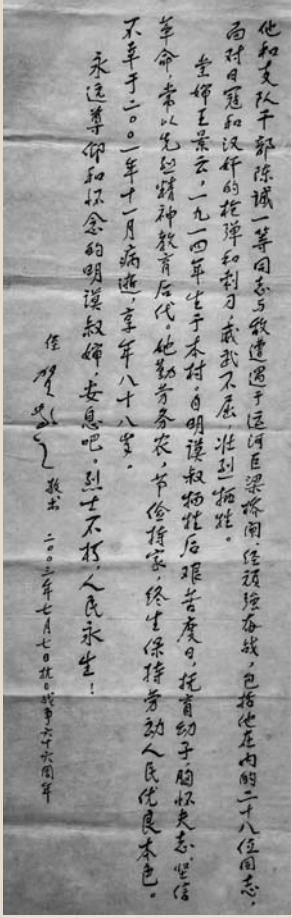 他和支队干部陈诚一等同志与敌遭遇于运河巨梁桥闸,经顽强奋战,包括他在内的二十八位同志,
面对日寇和汉奸的枪弹和刺刀,威武不屈,壮烈牺牲。
堂婶王景云,一九一四年生于本村,自明谟叔牺牲后艰苦度日,抚育幼子,胸怀夫志,坚信
革命,常以先烈精神教育后代。她勤劳务农,节俭持家,终生保持劳动人民优良本色。
不幸于二〇〇一年十一月病逝,享年八十八岁。
永远尊仰和怀念的明谟叔婶,安息吧。烈士不朽,人民永生!
侄 贺敬之 敬书 二〇〇三年七月七日抗日战争六十六周年